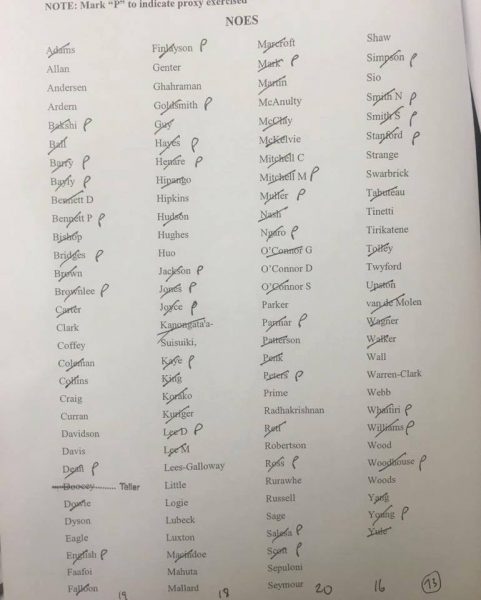 NOTE: Mark "P" to indicate proxy exercised
NOES
Adams
Allan
Andersen
Ardern
Bakshi P
Ball
Barry P
Bayly P
Bennett D
Bennett P P
Bishop
Bridges P
Brown
Brownlee P
Carter
Clark
Coffey
Coleman
Collins
Craig
Curran
Davidson
Davis
Dean P
Doocey.......... Teller
Dowie
Dyson
Eagle
English P
Faafoi
Falloon
19
Finlayson P
Genter
Ghahraman
Goldsmith P
Guy
Hayes P
Henare P
Hipango
Hipkins
Hudson
Hughes
Huo
Jackson P
Jones P
Joyce P
Kanongata'a-
Suisuiki,
Kaye P
King
Korako
Kuriger
Lee D P
Lee M
Lees-Galloway
Little
Logie
Lubeck
Luxton
Macindoe
Mahuta
Mallard
18
Marcroft
Mark P
Martin
McAnulty
McClay
McKelvie
Mitchell C
Mitchell M P
Muller P
Nash
Ngaro P
O'Connor G
O'Connor D
O'Connor S
Parker
Parmar P
Patterson
Penk
Peters P
Prime
Radhakrishnan
Reti
Robertson
Ross P
Rurawhe
Russell
Sage
Salesa P
Scott P
Sepuloni
Seymour
20
Shaw
Simpson P
Sio
Smith N P
Smith S P
Stanford P
Strange
Swarbrick
Tabuteau
Tinetti
Tirikatene
Tolley
Twyford
Upston
van de Molen
Wagner
Walker
Wall
Warren-Clark
Webb
Whaitiri P
Williams P
Wood
Woodhouse P
Woods
Yang
Young P
Yule
16
73